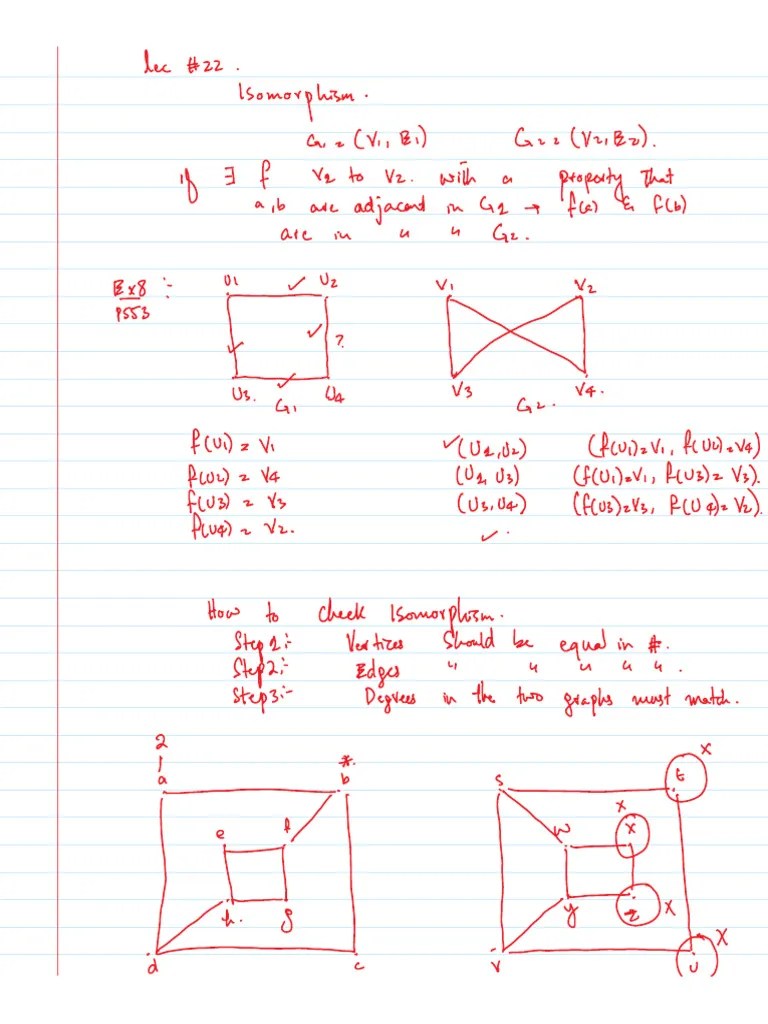 lec #22.
Isomorphism.
G1 = (V1, E1) G2 = (V2, E2).
if ∃ f V1 to V2. with a property that
a, b are adjacent in G1 → f(a) & f(b)
are in " " G2.
Ex8 :-
P553
U1 U2 V1 V2
?
U3. U4 V3 V4.
G1 G2.
f(U1) = V1 ✓(U1, U2) (f(U1)=V1, f(U2)=V4)
f(U2) = V4 (U1, U3) (f(U1)=V1, f(U3)=V3).
f(U3) = V3 (U3, U4) (f(U3)=V3, f(U4)=V2).
f(U4) = V2. ✓.
How to check Isomorphism.
Step1:- Vertices should be equal in #.
Step2:- Edges " " " " ".
Step3:- Degrees in the two graphs must match.
2 *. x
a b s t
x
e f w x
h. g y z x
x
d c v u